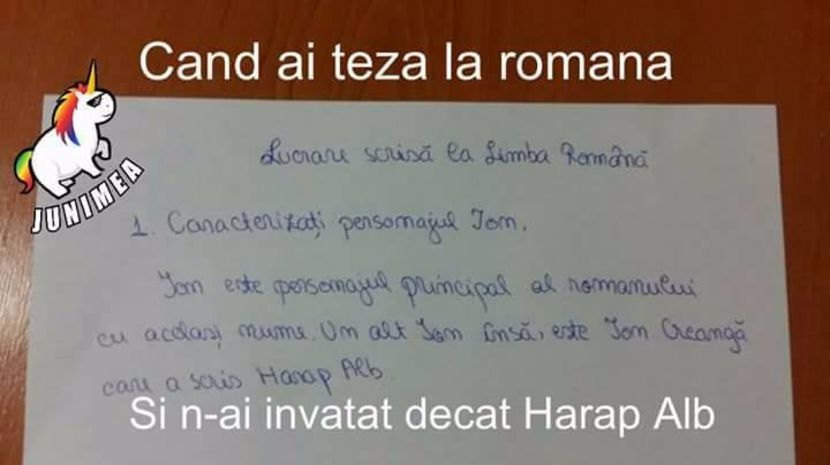 Cand ai teza la romana
JUNIMEA
Lucrare scrisă la Limba Română
1. Caracterizați personajul Ion.
Ion este personajul principal al romanului
cu același nume. Un alt Ion însă, este Ion Creangă
care a scris Harap Alb.
Si n-ai invatat decat Harap Alb